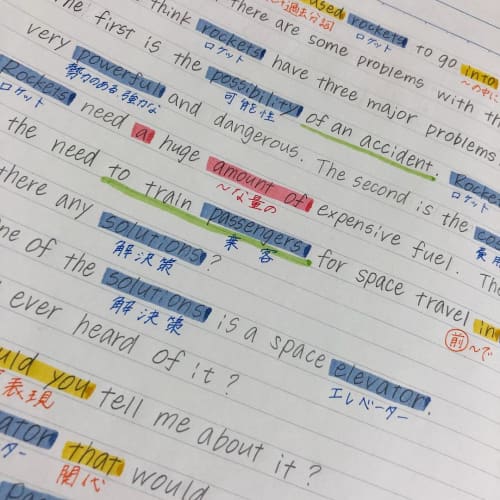 used rockets to go into
ロケット ～の中に
think rockets have three major problems
ロケット
there are some problems with th
The first is the possibility of an accident. Rockets
可能性 ロケット
very powerful and dangerous. The second is the
勢力のある強力な
Rockets need a huge amount of expensive fuel. The
ロケット ～な量の
the need to train passengers for space travel in
乗客 前 ～で
there any solutions?
解決策
One of the solutions is a space elevator.
解決策 エレベーター
ever heard of it?
uld you tell me about it?
表現
ator that would
ター 関代